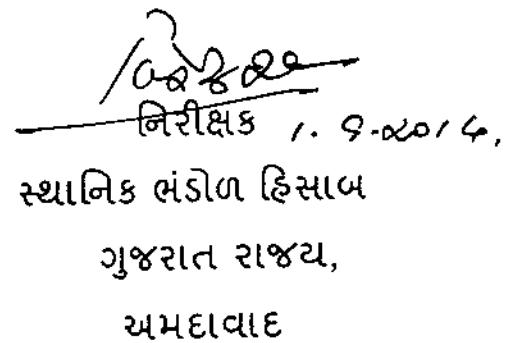 નિરીક્ષક
સ્થાનિક ભંડોળ હિસાબ
ગુજરાત રાજય,
અમદાવાદ